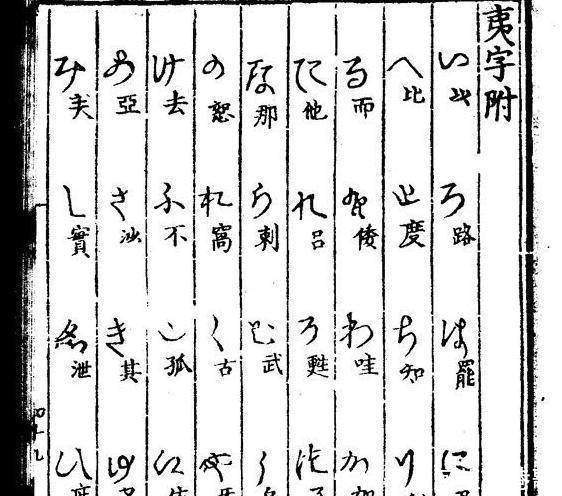 夷字附
い ろ路 は罷 に
へ比 と度 ち知 り
る而 を倭 わ哇 か加
た他 れ呂 そ甦 つ
な那 ら剌 む武 う
の お窩 く古 や
け去 ふ不 こ孤 え
あ亞 さ沙 き其 ゆ
み し實 ゑ泄 ひ